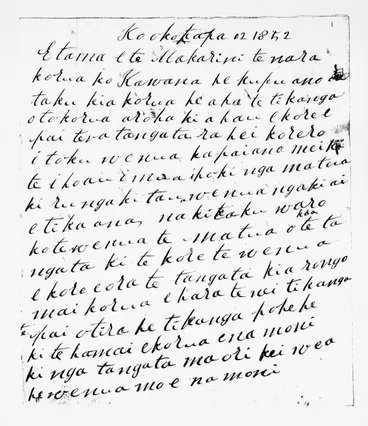 Ko okotapa 12 1852
E tama e te Makarini te nara
korua ko Kawana he kupu ano
taku kia korua he aha te tikanga
o to korua aroha ki ahau e kore e
pai tera tangata ra hei korero
i toku wenua ka pai ano mei
te i hoau i mua i hoki nga matua
ki runga ki tau wenua nga ki ai
e tika ana na ki taku waro
ko te wenua te matua o te ta
ngata ki te kore te wenua
e kore e ora te tangata kia rongo
mai korua ehara te nei tikanga
te pai otira he tikanga pohehe
ki te hamai e korua ena moni
ki nga tangata maori kei wea
he wenua mo e na moni